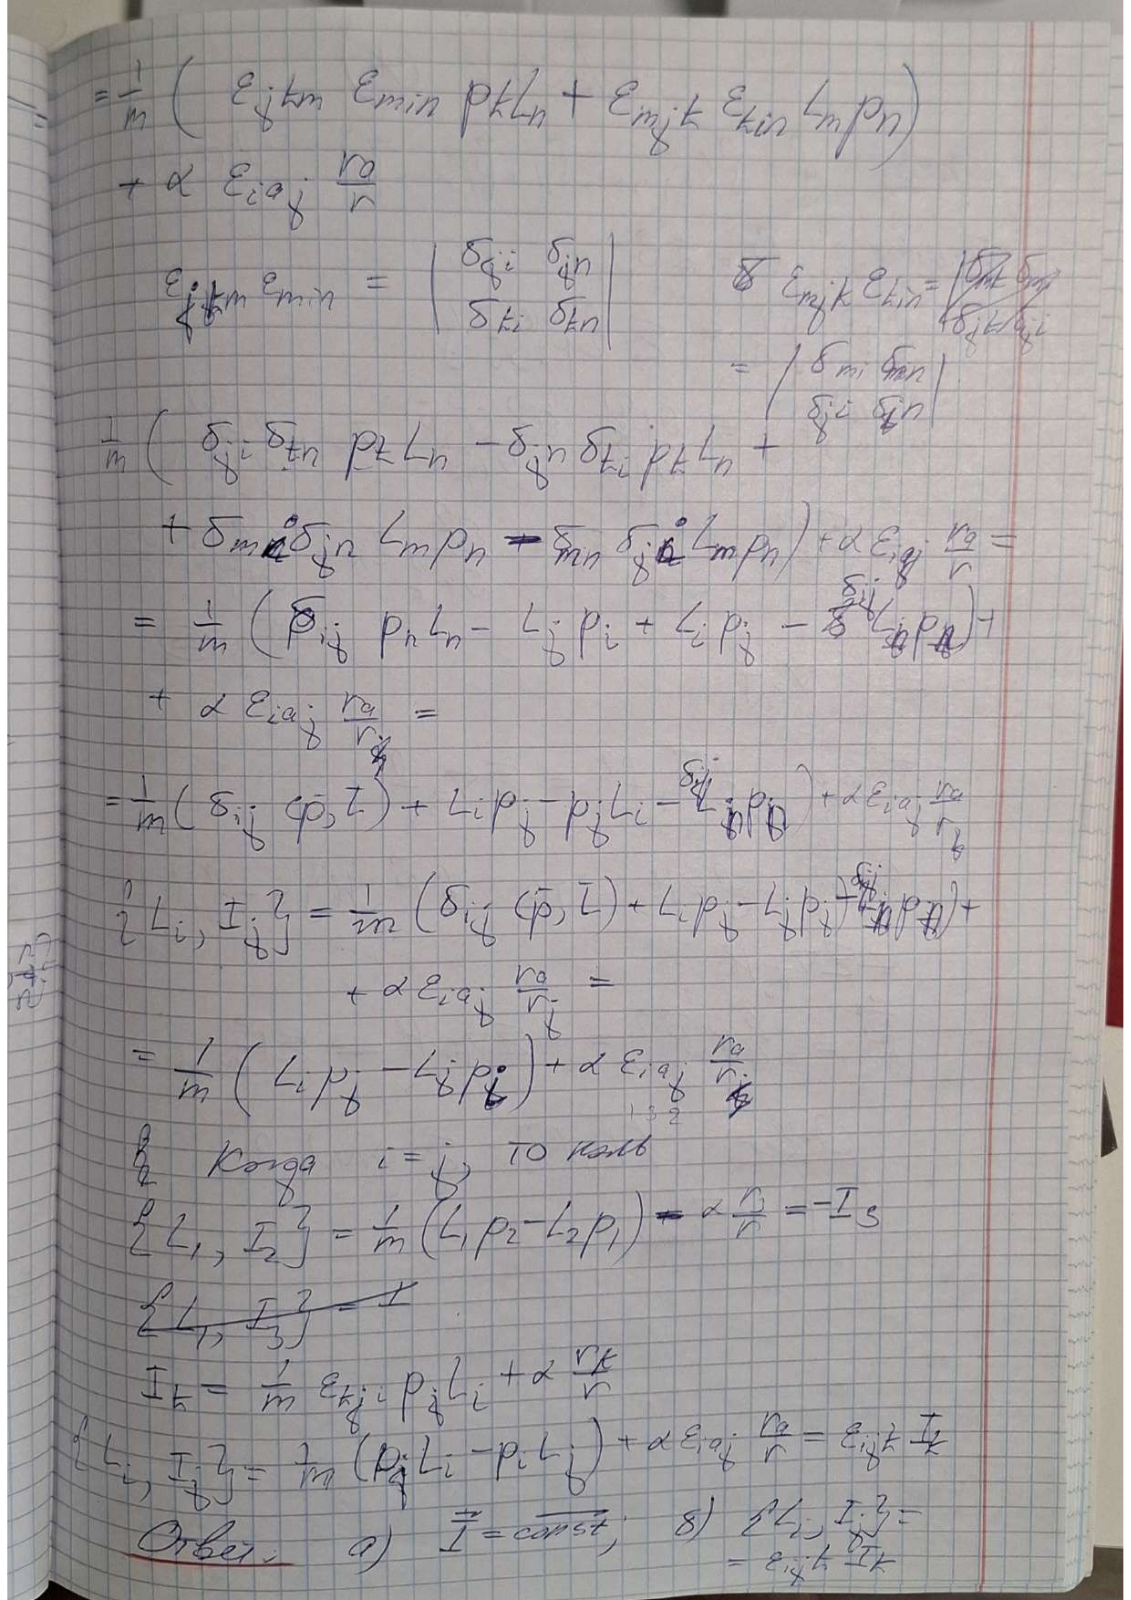 = 1/m ( ε_jkm ε_min p_k L_n + ε_mjk ε_kin L_m p_n )
+ α ε_iaj r_a/r
ε_jkm ε_min = | δ_ji δ_jn | ε_mjk ε_kin =
| δ_ki δ_kn |
= | δ_mi δ_mn |
| δ_ji δ_jn |
1/m ( δ_ji δ_kn p_k L_n − δ_jn δ_ki p_k L_n +
+ δ_mi δ_jn L_m p_n − δ_mn δ_ji L_m p_n ) + α ε_iaj r_a/r =
= 1/m ( δ_ij p_n L_n − L_j p_i + L_i p_j − δ_ji L p ) +
+ α ε_iaj r_a/r =
= 1/m ( δ_ij (p⃗, L⃗) + L_i p_j − p_j L_i − δ_ji L p ) + α ε_iaj r_a/r
{L_i, I_j} = 1/m ( δ_ij (p⃗, L⃗) + L_i p_j − L_j p_j − δ_ji L p ) +
+ α ε_iaj r_a/r =
= 1/m ( L_i p_j − L_j p_i ) + α ε_iaj r_a/r
132
Когда i = j, то ноль
{L_1, I_2} = 1/m (L_1 p_2 − L_2 p_1) − α r_3/r = −I_3
{L_1, I_3} = I
I_k = 1/m ε_kji p_j L_i + α r_k/r
{L_i, I_j} = 1/m (p_j L_i − p_i L_j) + α ε_iaj r_a/r = ε_ijk I_k
Ответ. а) I⃗ = const; б) {L_i, I_j} =
= ε_ijk I_k